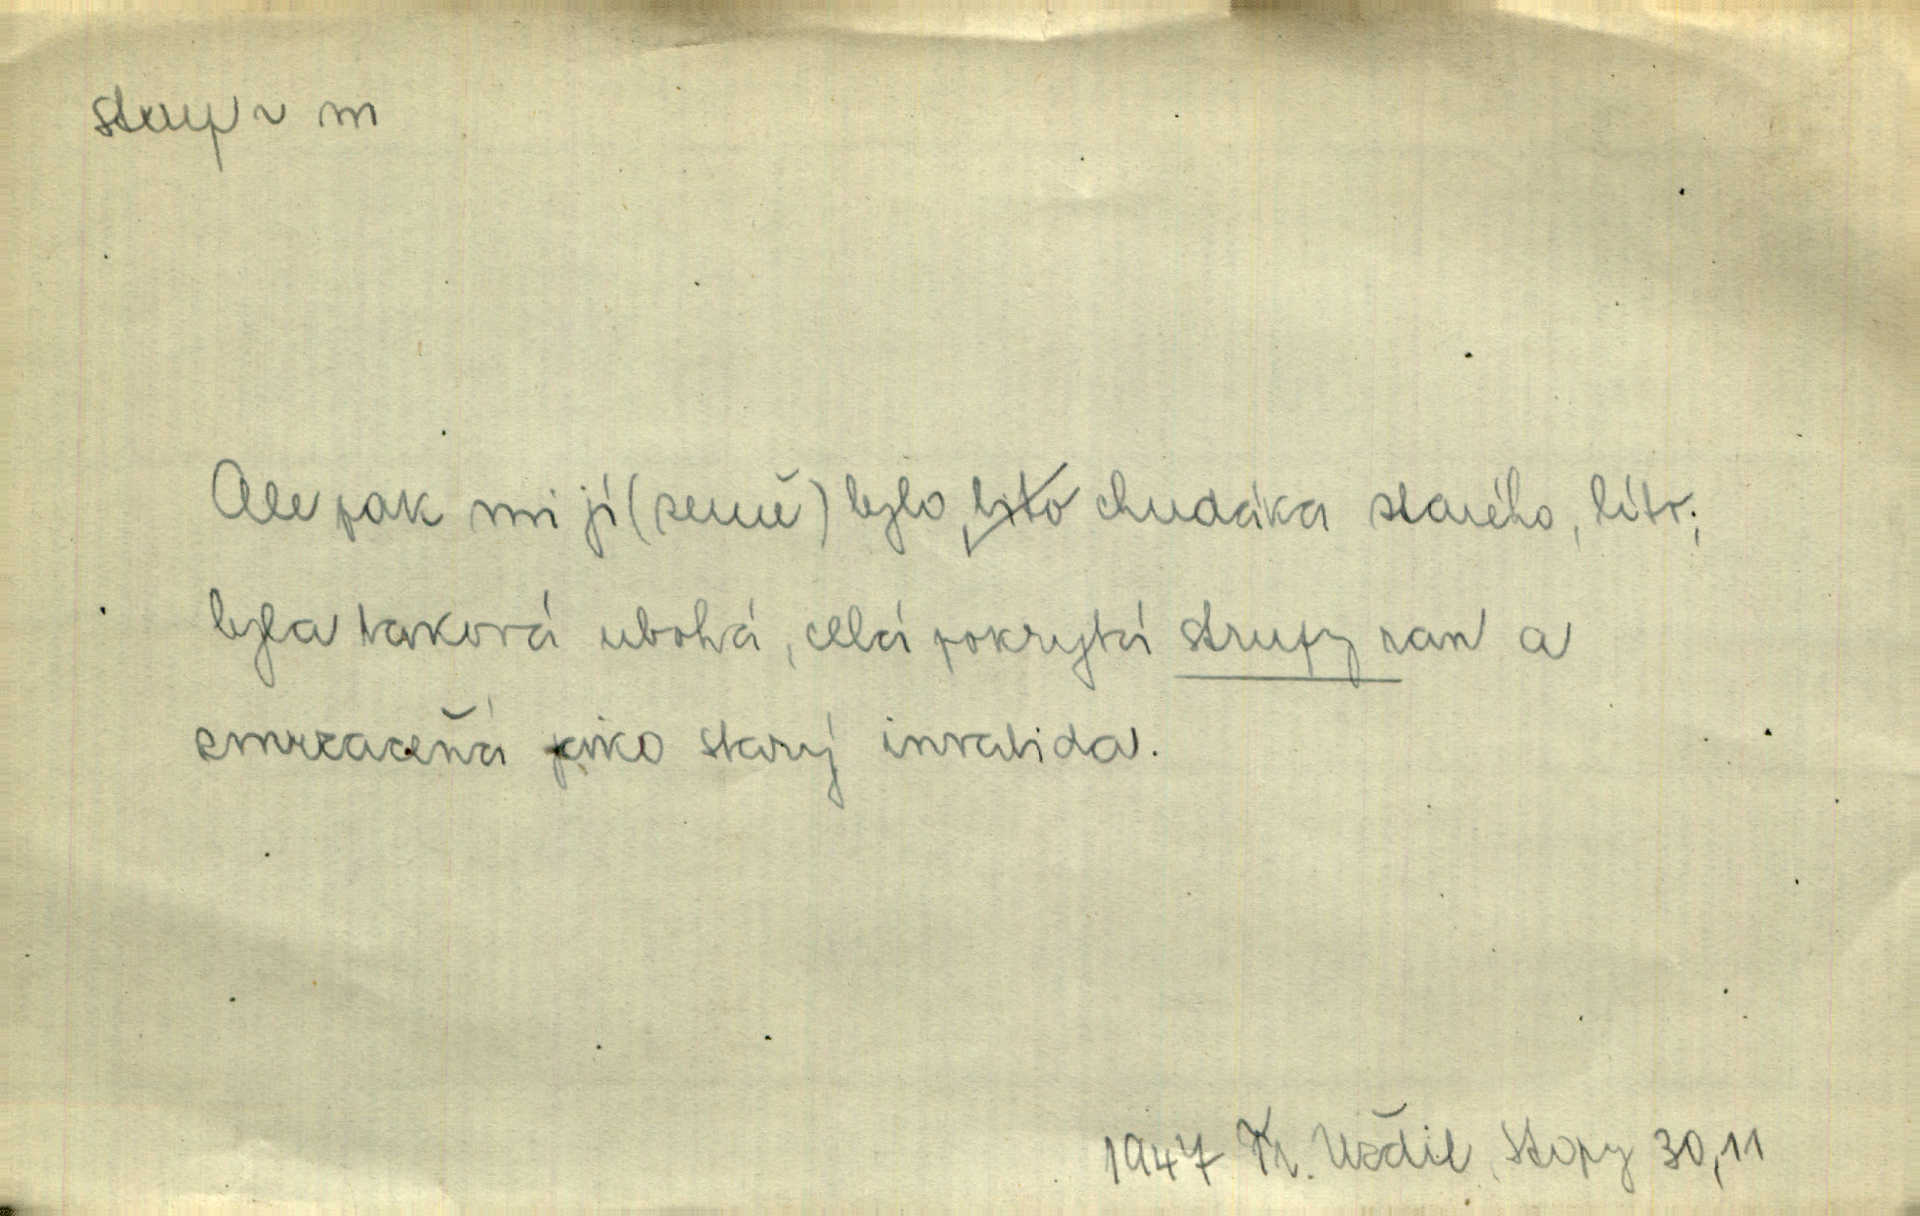 strup ~ m
Ale pak mi jí (země) bylo, líto chudáka starého, líto;
byla taková ubohá, celá pokrytá strupy ran a
zmrzačená jako starý invalida.
1947 Fr. Uždil, Stopy 30,11